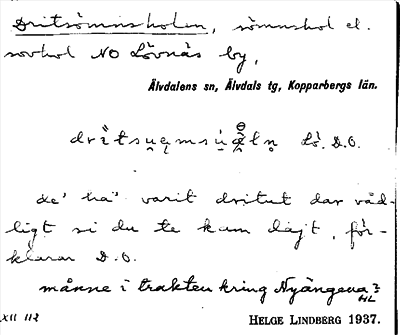 Dritsömnsholen, sömnshol el.
sovhol NO Lövnäs by,
Älvdalens sn, Älvdals tg, Kopparbergs län.
Lö. D.O.
de' ha' varit dritut dar våd-
ligt si du te kam dajt, för-
klarar D.O.
månne i trakten kring Nyängena?
HL
XII 112
HELGE LINDBERG 1937.